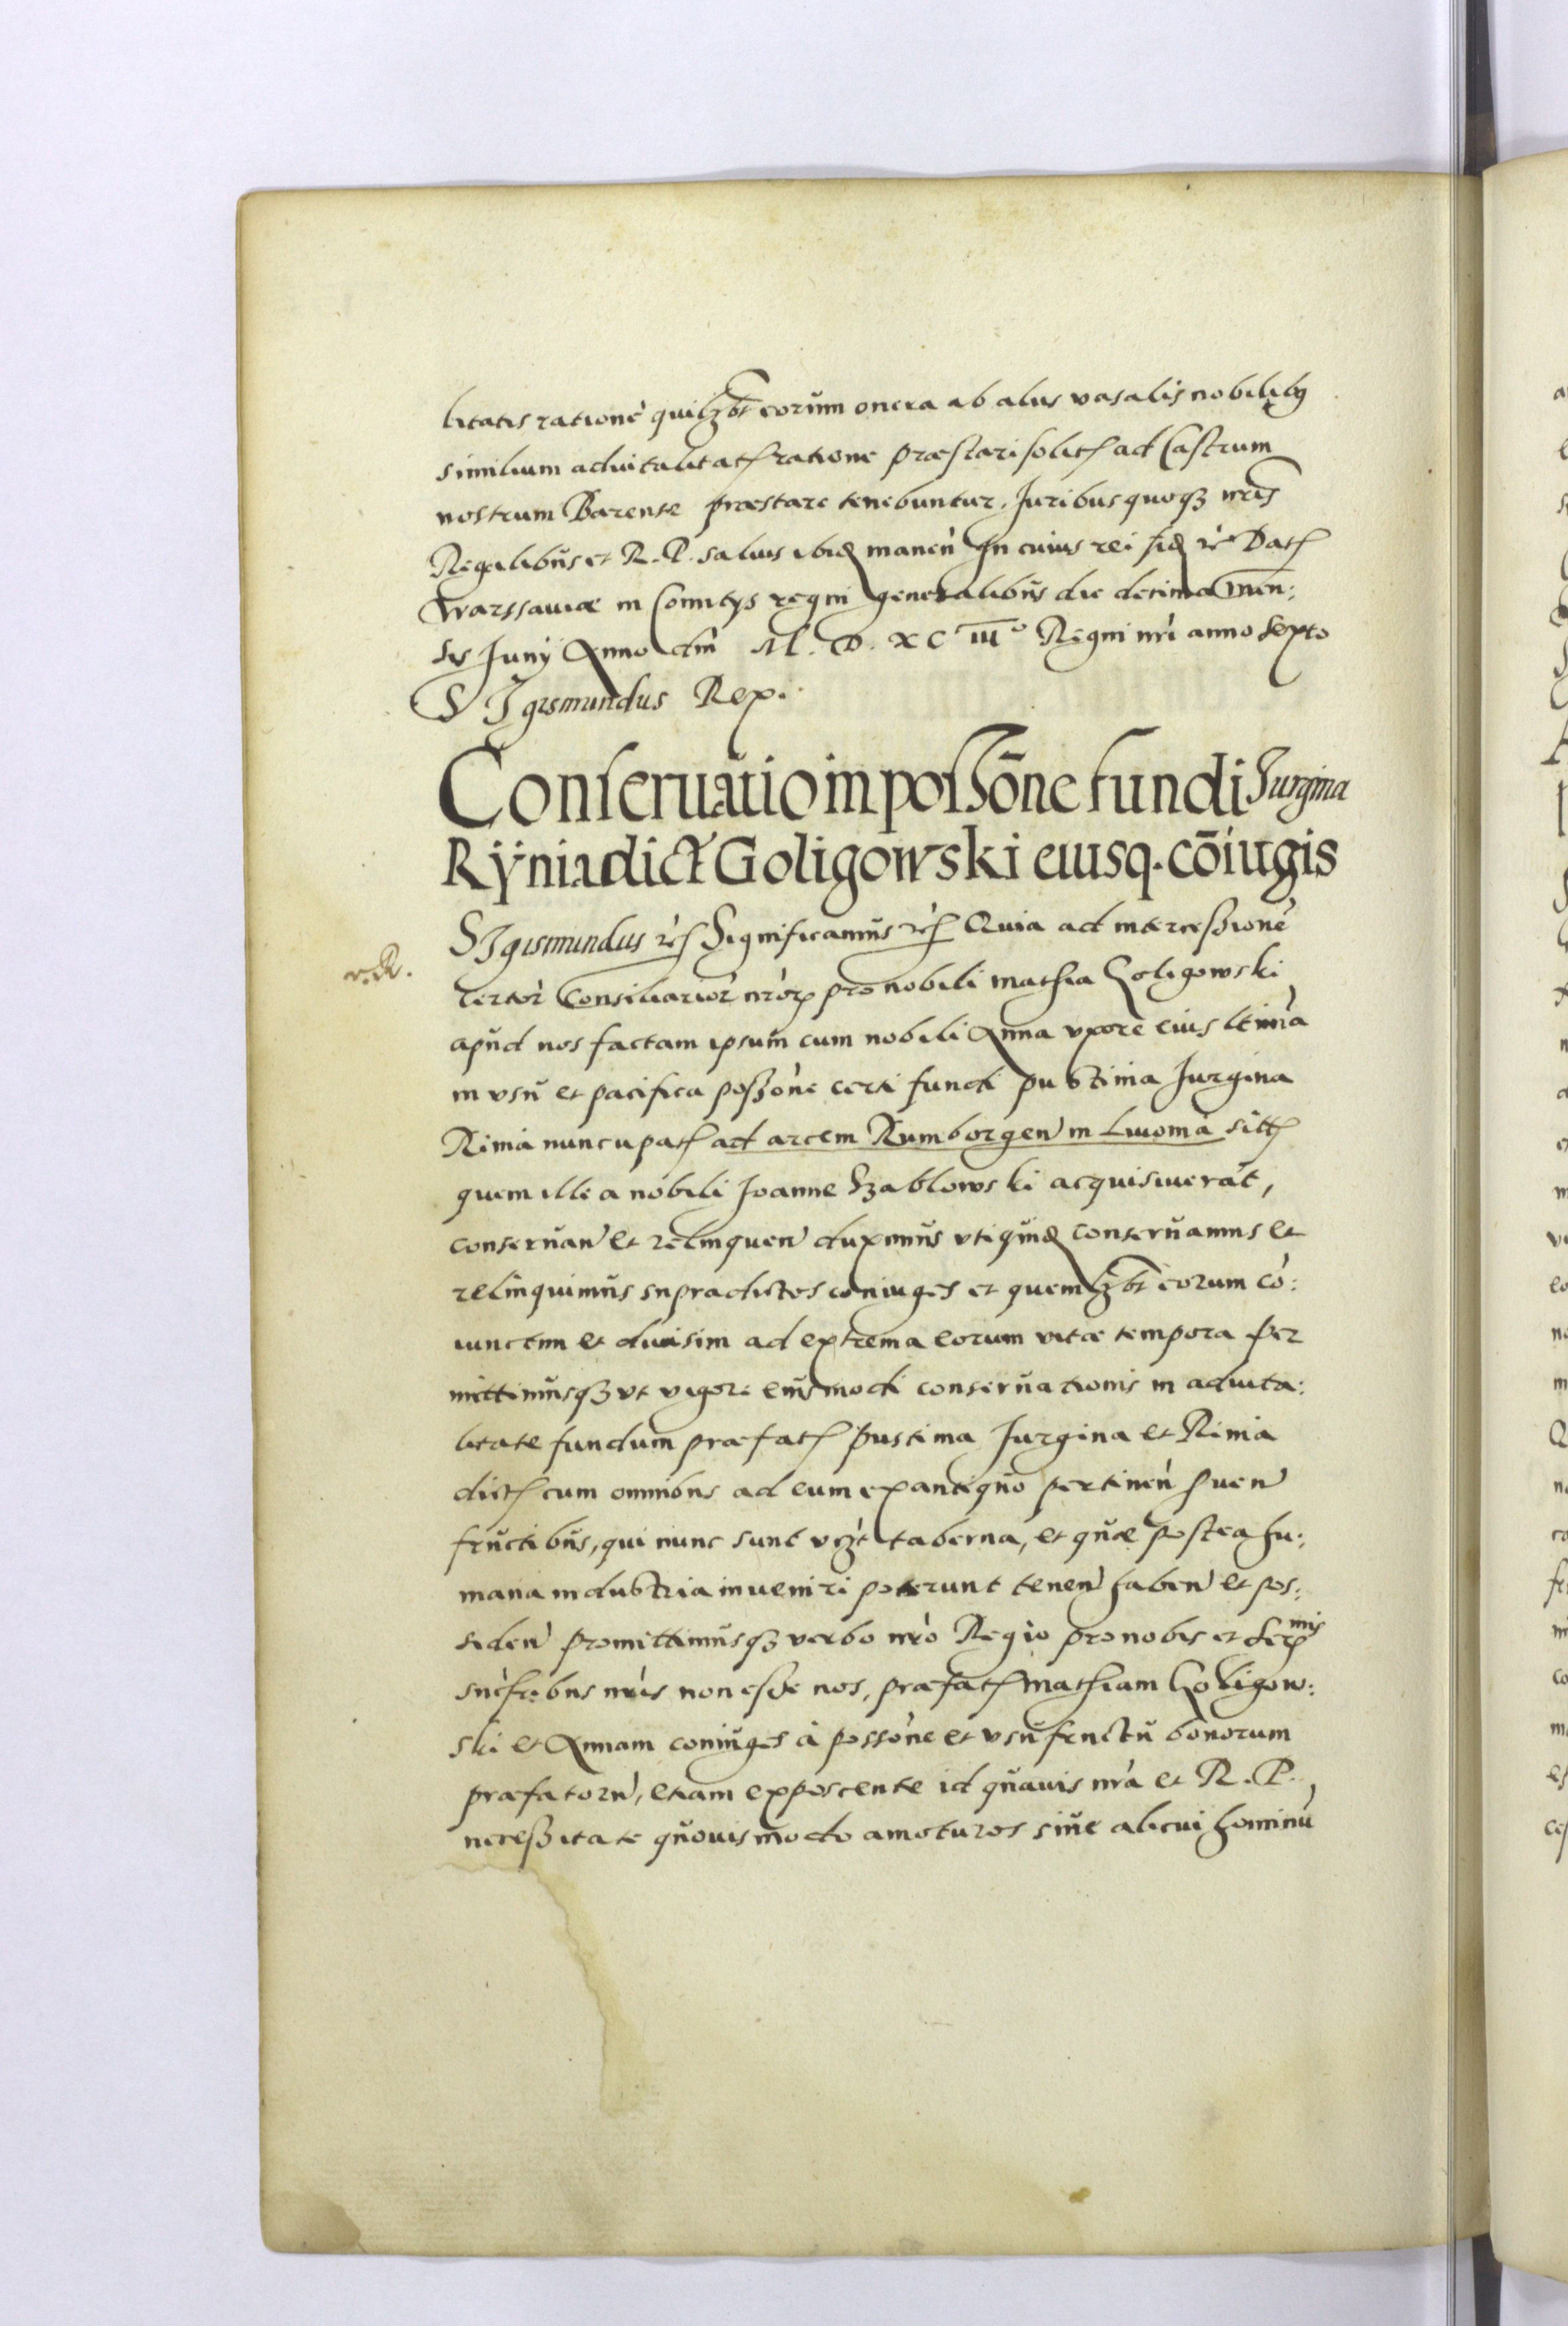 litatis rationè quilʒbt eorum onera ab alijs vasalis nobilibq
similium aduitalitatꝭ ratione præstari solitꝭ ad Castrum
nostrum Barense præstare tenebuntur, Juribus quoqʒ nris
Regalibus et R. P. saluis ibidꝫ manen̄ In cuius rei fidꝫ rc̄ Datꝭ
Warssauiæ in Comitijs regni generalibus die decima Men:
sis Junij Anno dni M. D. XC iii° Regni nri anno Sexto
SIgismundus Rex.
Conseruatio in possōne fundi Jurgina
Rÿnia dict Goligowski eiusq. cōiugis
v.R.
SIgismundus rcꝭ Significamus rcꝭ Quia ad intercessionē
certor Consiliarior nrorꝝ pro nobili Mathia Goligowski
apud nos factam ipsum cum nobili Anna vxore eius ltima
in vsu et pacifica possone certi fundi pustinia Jurgina
Rinia nuncupatꝭ ad arcem Rumborgen̄ in Liuonia sittꝭ
quem ille a nobili Joanne Szablowski acquisiuerat,
conseruan̄ et relinquen̄ duximus vti quidꝫ conseruamus et
relinquimus supradictos coniuges et quemlʒbt eorum cō:
iunctim et diuisim ad extrema eorum vitæ tempora per
mittimusqʒ vt vigore eiusmodi conseruationis in aduita:
litate fundum præfatꝭ pustinia Jurgina et Rinia
dictꝭ cum omnibus ad eum ex antiquo pertinen̄ prouen̄
fructibus, qui nunc sunt vʒt taberna, et quæ postea hu:
mana industria inueniri poterunt tenen̄ haben̄ et pos:
siden̄ promittimusqʒ verbo nro Regio pro nobis et Ser mis
succribus nris non esse nos, præfatꝭ Mathiam Goligow:
ski et Annam coniuges à possone et vsufructu bonorum
præfatoru, etiam exposcente id quauis nra et R. P.
necessitate quouis modo amoturos siue alicui hominu